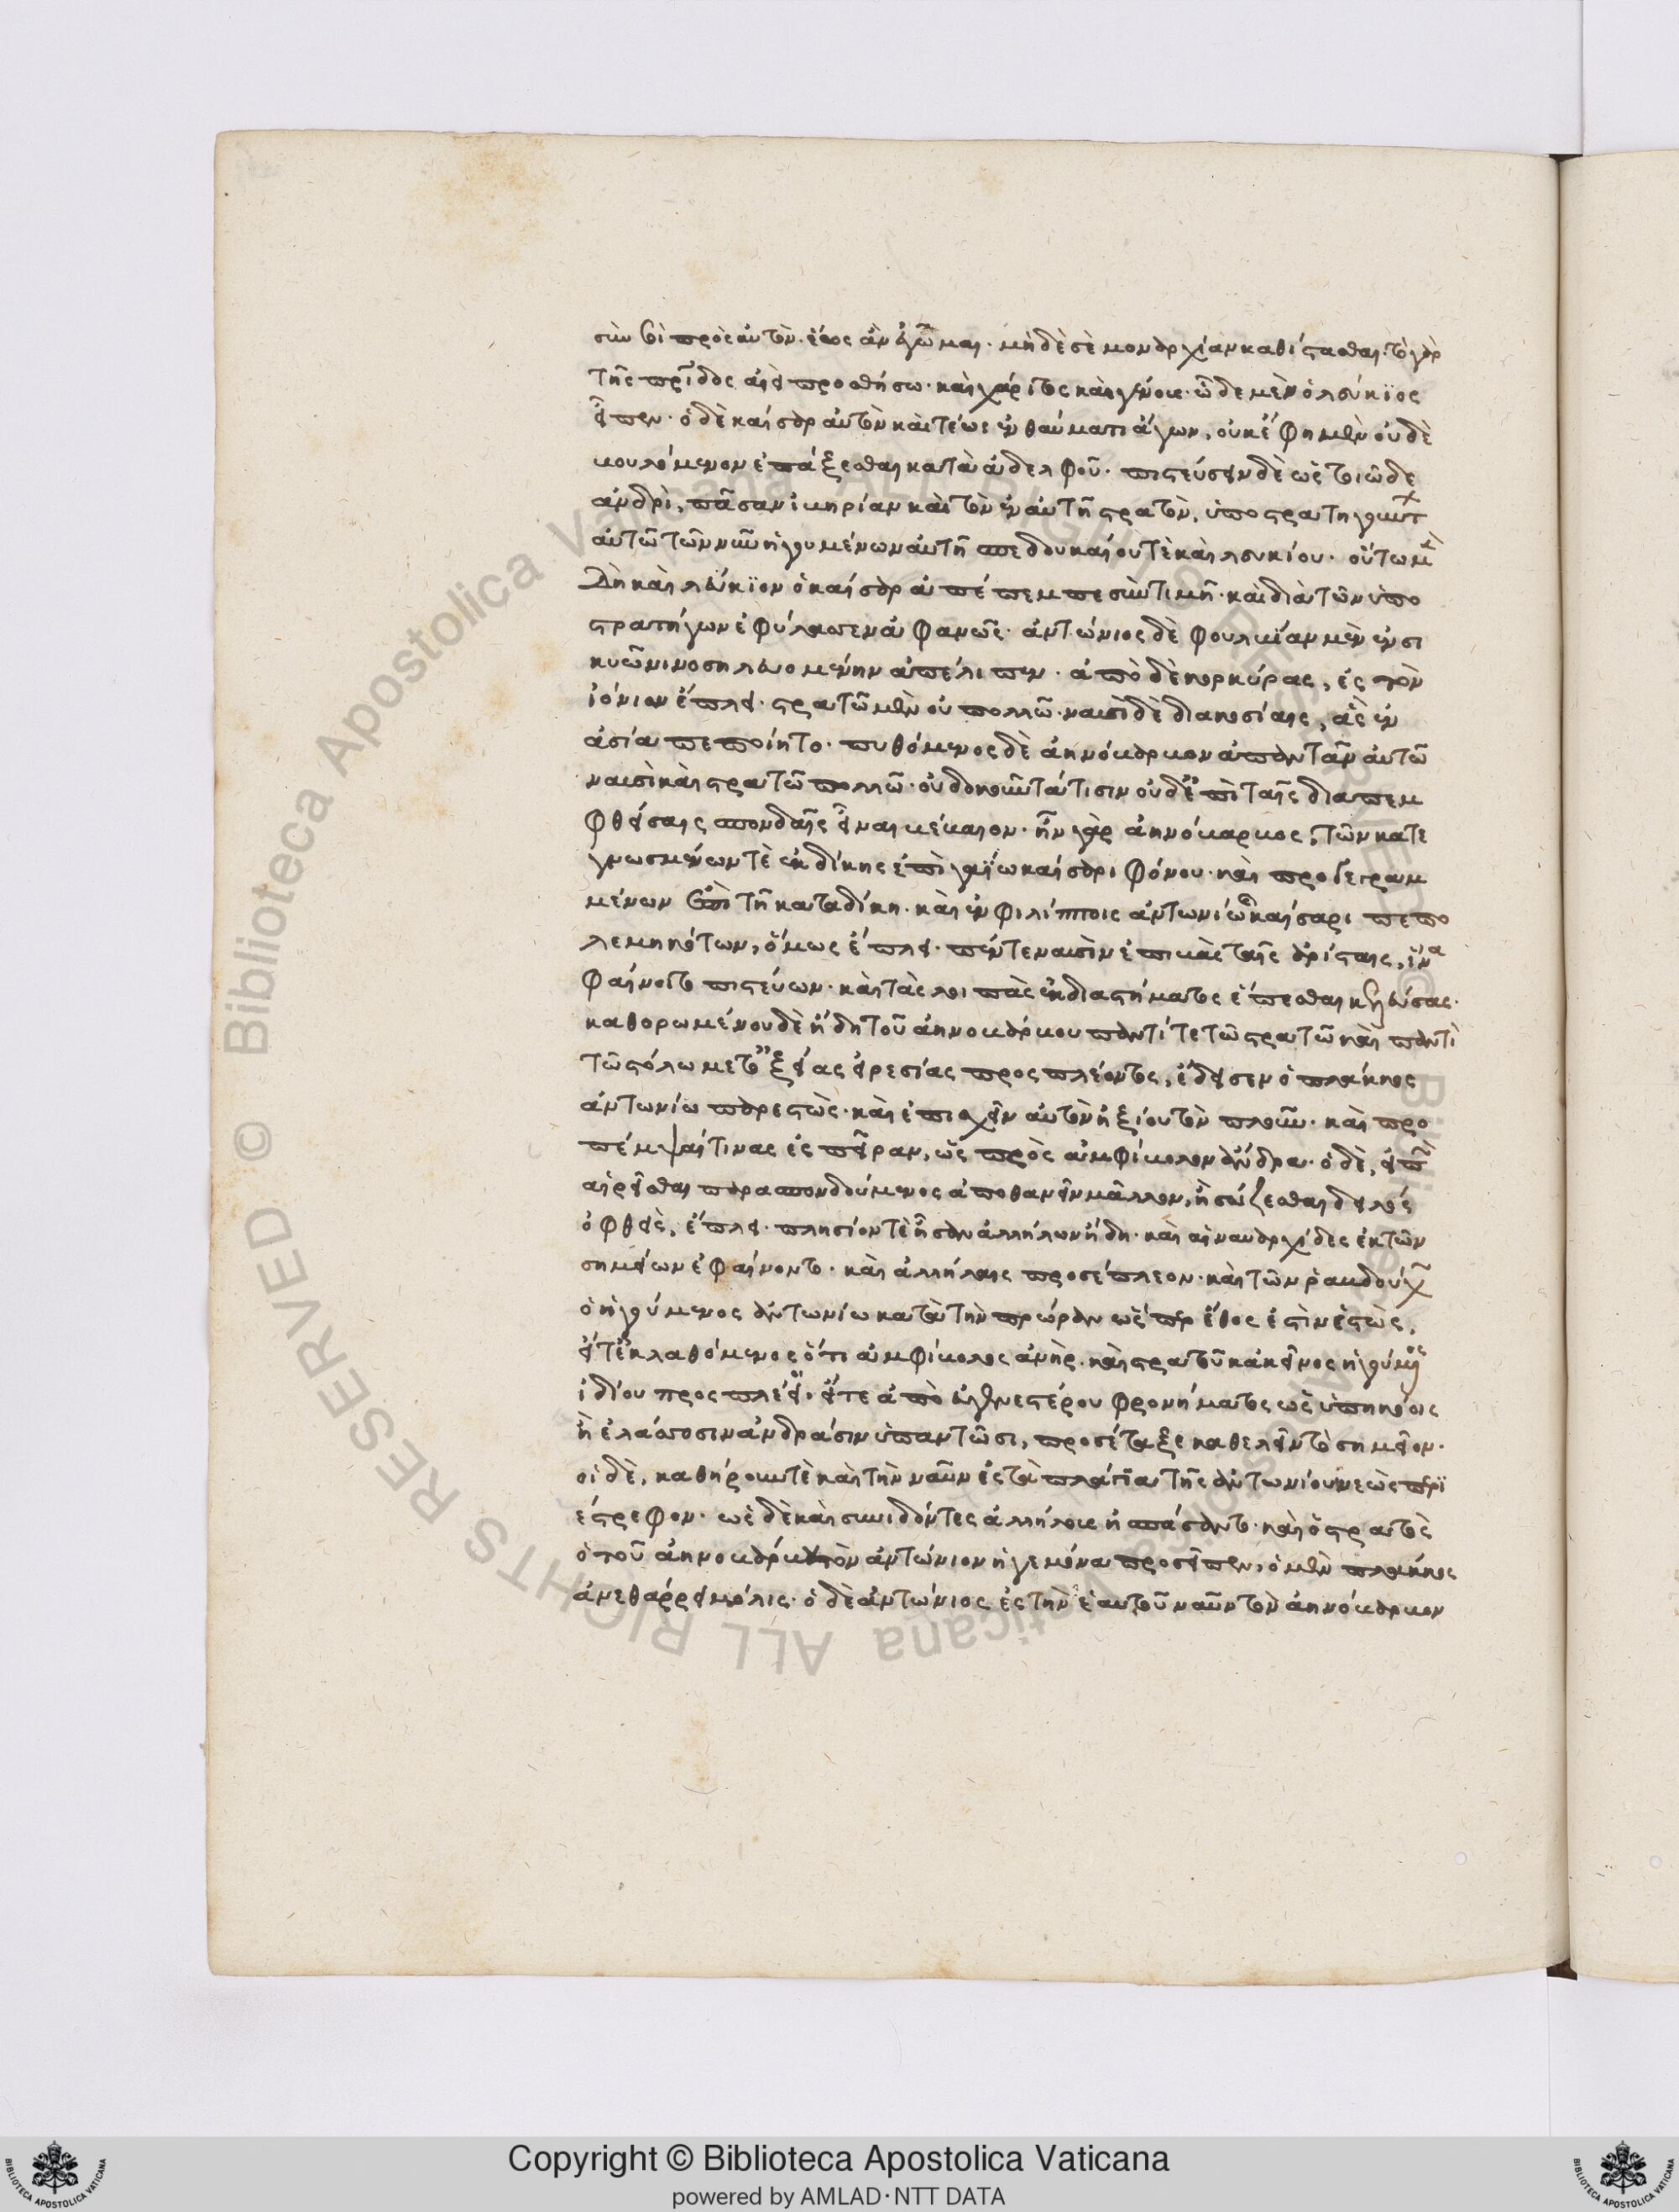 σὺν σοὶ πρὸς αὐτὸν ἕως ἂν δυνώμαι. μὴ δὲ σὲ μοναρχίαν καθίστασθαι. τὸ γὰρ
τῆς πατρίδος ἀεὶ προθήσω. καὶ χάριτος καὶ γένους. ὧδε μὲν ὁ λεύκιος
εἶπεν. ὁ δὲ καῖσαρ αὐτὸν καὶ τέως ἐν θαύματι ἄγων, οὐκ ἔφη μὲν οὐδὲ
βουλόμενον ἐπάξεσθαι κατὰ ἀδελφοῦ. πιστεύσειν δὲ ὡς τοιῷδε
ἀνδρὶ, πᾶσαν ἰβηρίαν καὶ τὸν ἐν αὐτῇ στρατὸν, ὑποστρατηγούντ
αὐτῷ τῶν νῦν ἡγουμένων αὐτῇ πεδουκαίου τὲ καὶ λευκίου. οὕτω μὲν
δὴ καὶ λεύκϊον ὁ καῖσαρ ἀπέπεμπε σὺν τιμῇ. καὶ διὰ τῶν ὑπο
στρατήγων ἐφύλασσεν ἀφανῶς. ἀντώνιος δὲ φουλβίαν μὲν ἐν σι
κυῶνι νοσηλευομένην ἀπέλιπεν. ἀπὸ δὲ κορκύρας, ἐς τὸν
ἰόνιον ἔπλει. στρατῷ μὲν οὐ πολλῷ. ναυσὶ δὲ διακοσίαις, ἃς ἐν
ἀσία πεποίητο. πυθόμενος δὲ ἀηνόβαρβον ἀπαντᾶν αὐτῷ
ναυσὶ καὶ στρατῷ πολλῷ. οὐ δοκοῦντά τισιν οὐδ' ἐπὶ ταῖς διαπεμ
φθείσαις σπονδαῖς εἶναι βέβαιον. ἦν γὰρ ἀηνόβαρβος, τῶν κατε
γνωσμένων τὲ ἐκ δίκης ἐπὶ γαΐω καίσαρι φόνου. καὶ προγεγραμ
μένων ἐπὶ τῇ καταδίκη. καὶ ἐν φιλίπποις ἀντωνίω καὶ καίσαρι πεπο
λεμηκότων, ὅμως ἔπλει. πέντε ναυσὶν ἐπιβὰς ταῖς ἀρίσταις, ἵνα
φαίνοιτο πιστεύων. καὶ τὰς λοιπὰς ἐκ διαστήματος ἕπεσθαι κελεύσας.
καθορωμένου δὲ ἤδη τοῦ ἀηνοβάρβου παντί τε τῷ στρατῷ καὶ παντὶ
τῷ στόλω μετ' ὀξείας εἰρεσίας προσπλέοντος, ἔδεισεν ὁ πλάγκος
ἀντωνίω παρεστώς. καὶ ἐπισχεῖν αὐτὸν ἠξίου τὸν πλοῦν. καὶ προ
πέμψαί τινας ἐς πεῖραν, ὡς πρὸς ἀμφίβολον ἄνδρα. ὁ δὲ, εἰπὼν
αἱρεῖσθαι παρασπονδούμενος ἀποθανεῖν μᾶλλον, ἢ σώζεσθαι δειλὸς
ὀφθεὶς, ἔπλει. πλησίον τὲ ἦσαν ἀλλήλων ἤδη. καὶ αἱ ναυαρχίδες ἐκ τῶν
σημείων ἐφαίνοντο. καὶ ἀλλήλαις προσέπλεον. καὶ τῶν ῥαβδούχων
ὁ ἡγούμενος ἀντωνίω κατὰ τὴν πρώραν ὥσπερ ἔθος ἐστὶν ἑστὼς,
εἴτ' ἐκλαθόμενος ὅτι ἀμφίβολος ἀνὴρ. καὶ στρατοῦ κἀκεῖνος ἡγούμενος
ἰδίου προσπλεῖ. εἴτε ἀπὸ εὐγενεστέρου φρονήματος ὡς ὑπηκόοις
ἢ ἐλάττοσιν ἀνδράσιν ὑπαντῶσι, προσέταξε καθελεῖν τὸ σημεῖον.
οἱ δὲ, καθήρουν τὲ καὶ τὴν ναῦν ἐς τὰ πλάγια τῆς ἀντωνίου νεὼς περϊ
έστρεφον. ὡς δὲ καὶ συνιδόντες ἀλλήλους ἠσπάσαντο. καὶ ὁ στρατὸς
ὁ τοῦ ἀηνοβάρβου τὸν ἀντώνιον ἡγεμόνα προσεῖπεν, ὁ μὲν πλάγκος
ἀνεθάρρει μόλις. ὁ δὲ ἀντώνιος ἐς τὴν ἑαυτοῦ ναῦν τὸν ἀηνόβαρβον
Copyright © Biblioteca Apostolica Vaticana
powered by AMLAD·NTT DATA